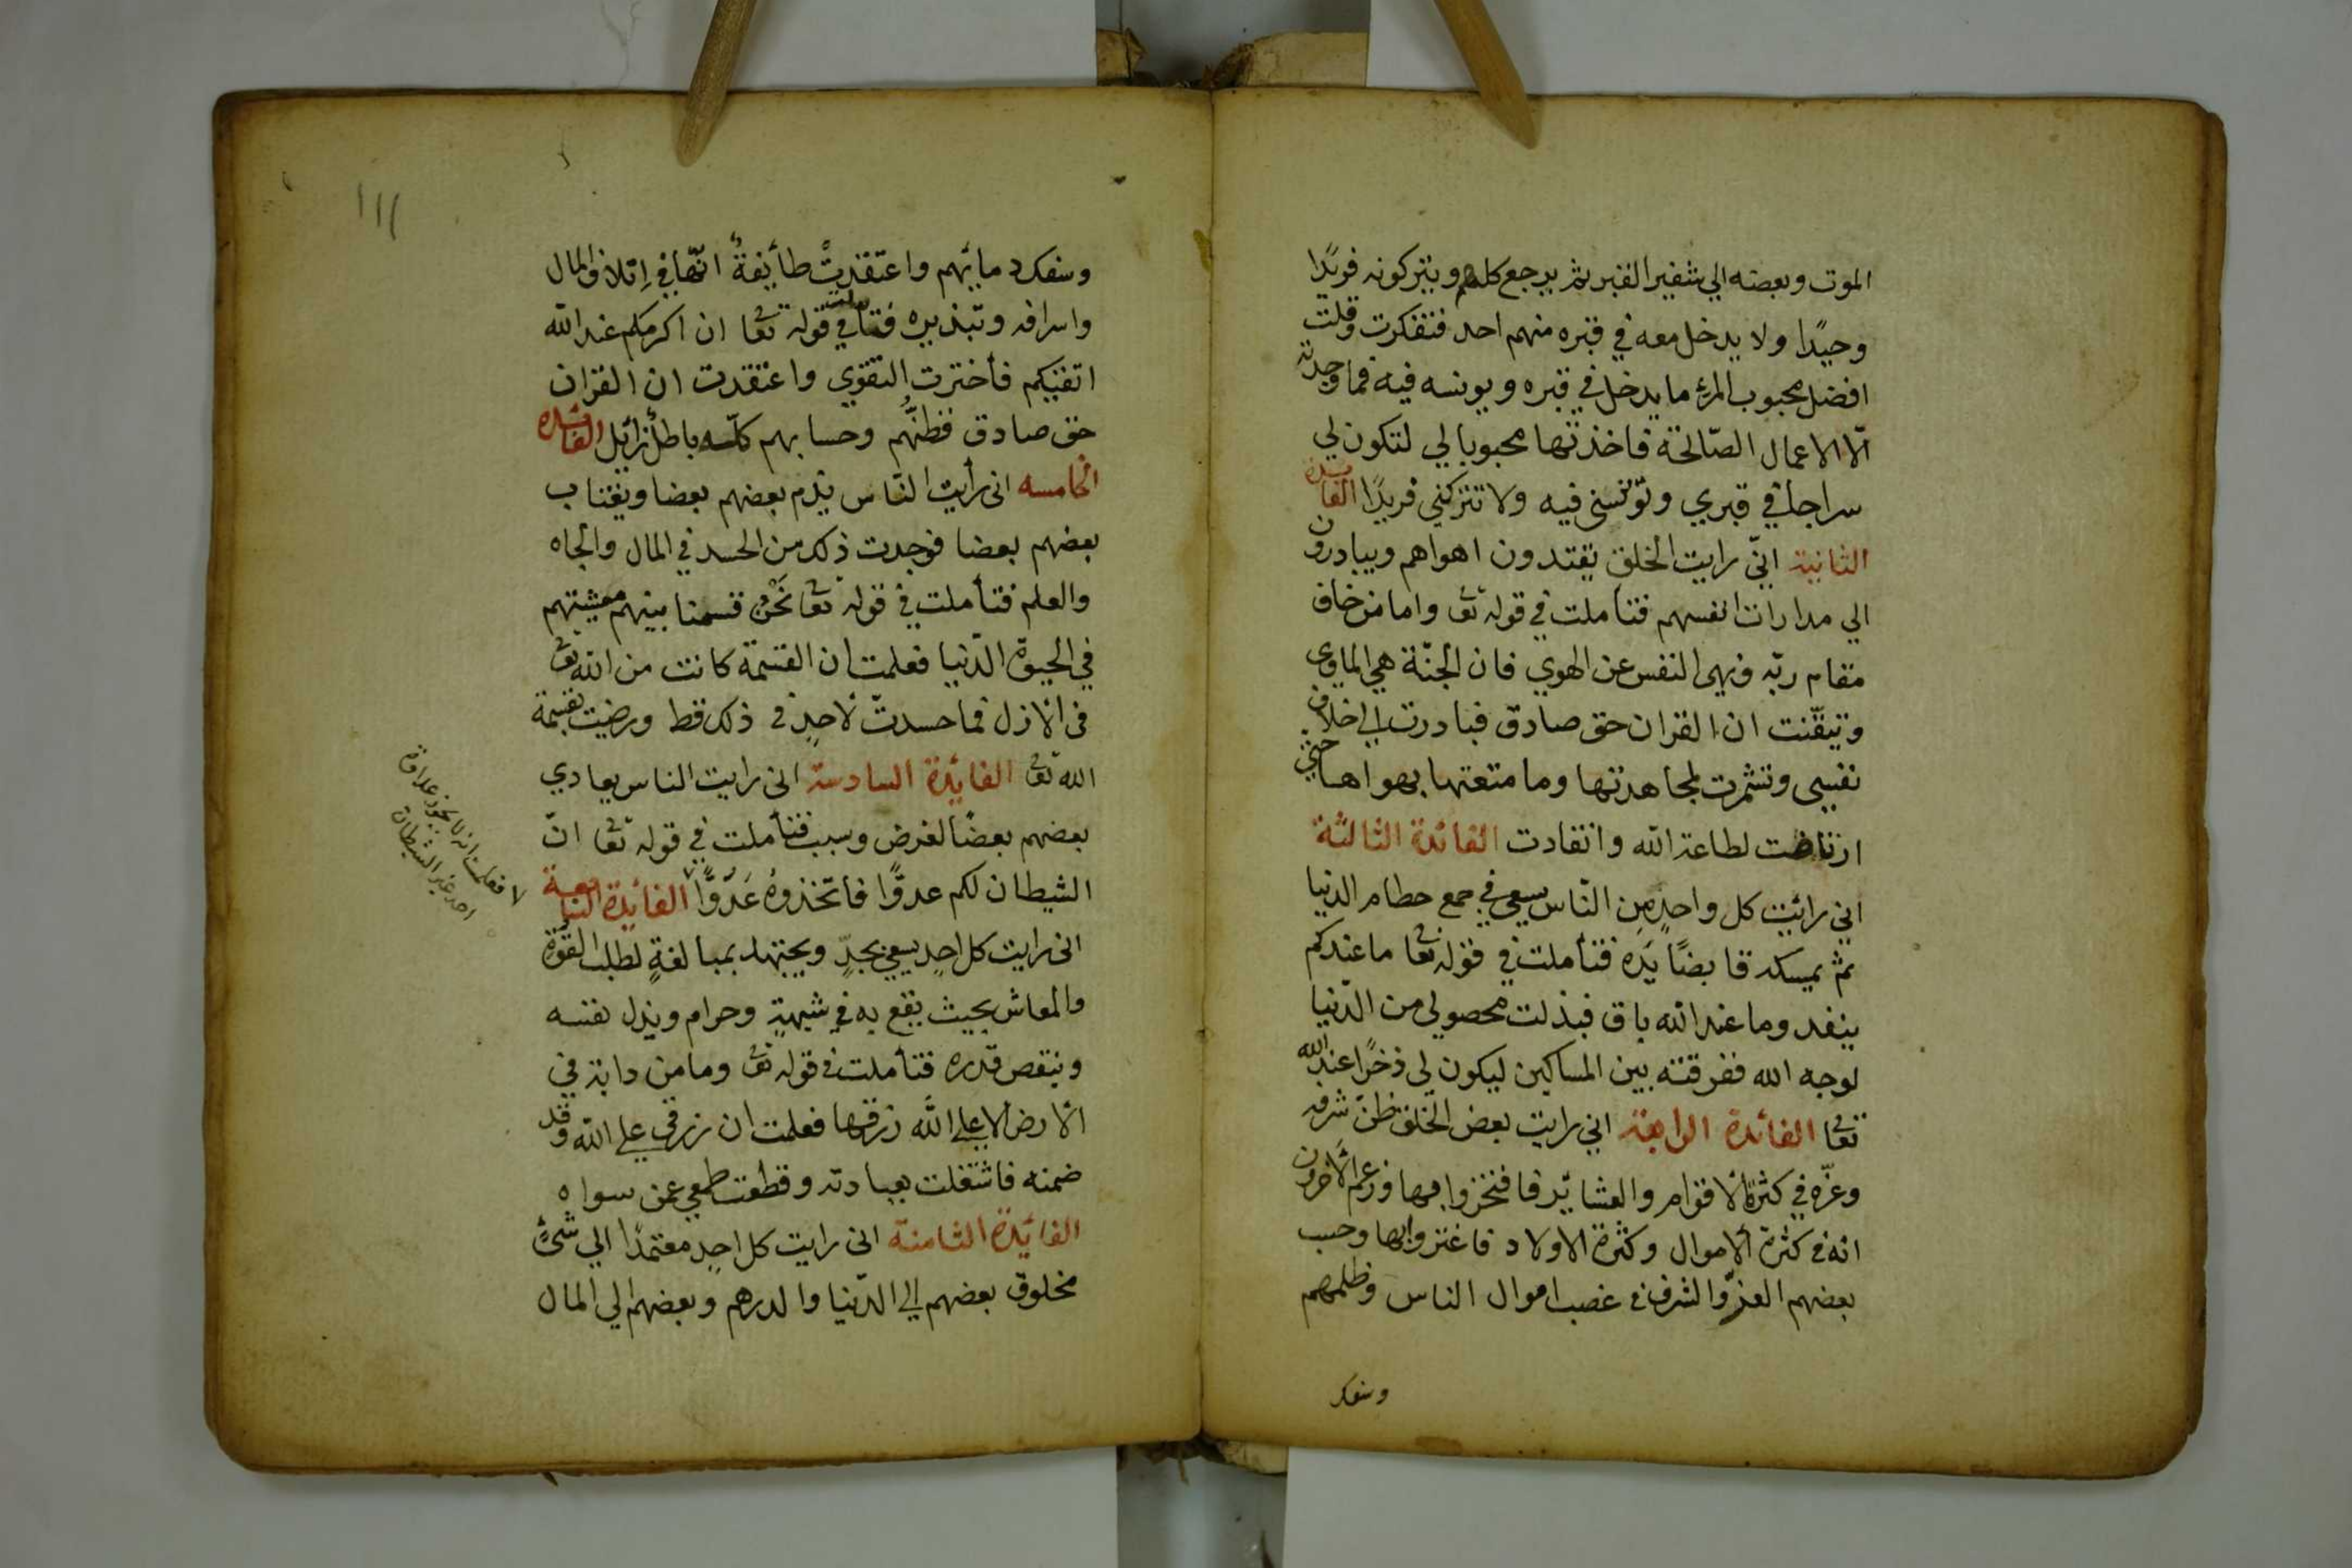 الموت وبعضه الي شفير القبر ثم يرجع كلهم ويتركونه فريدًا
وحيدًا ولا يدخل معه في قبره منهم احد فتفكرت وقلت
افضل محبوب المرء ما يدخل في قبره ويونسه فيه فما وجدته
الّا الاعمال الصّالحة فاخذتها محبوبا لي لتكون لي
سراجا في قبري وتؤنسنى فيه ولا تتركني فريدًا الفائدة
الثانية انّي رايت الخلق يقتدون اهواهم ويبادرون
الي مدارات انفسهم فتأملت في قوله تعا واما من خاف
مقام ربّه ونهى النفس عن الهوي فان الجنّة هي الماوى
وتيقّنت ان القران حق صادق فبادرت الي خلاف
نفسى وتشمرت لمجاهدتها وما متعتها بهواها حتي
ارتاضت لطاعة الله وانقادت الفائدة الثالثة
اني رائيت كل واحدٍ مِن النّاس يسعى في جمع حطام الدنيا
ثم يمسكه قابضًا يَدَه فتأملت في قوله تعا ما عندكم
ينفد وما عند الله باق فبذلت محصولي من الدّنيا
لوجه الله ففرقته بين المساكين ليكون لي ذخرًا عند الله
تعا الفائدة الرابعة اني رايت بعض الخلق ظنّ شرفه
وعزّه في كثرة الاقوام والعشائر فافتخروا بها وزعم الآخرون
انه في كثرة ألاموال وكثرة الاولاد فاغتروا بها وحسب
بعضهم العزّ والشرف في غصب اموال الناس وظلمهم
وسفك
وسفك دمائهم واعتقدتْ طائفةٌ انّها في اِتلاف المال
واسرافه وتبذيره فتأملت في قوله تعا ان اكرمكم عند الله
اتقيكم فأخترت التقوي واعتقدت ان القران
حق صادق فظنّهم وحسابهم كلّه باطل زائل الفائدة
الخامسه انى رأيت النّاس يذم بعضهم بعضا ويغتاب
بعضهم بعضا فوجدت ذلك من الحسد في المال والجاه
والعلم فتأملت في قوله تعا نَحْنُ قسمنا بينهم معيشتهم
في الحيوة الدّنيا فعلمت ان القسمة كانت من الله تعا
فى الازل فما حسدتّ لاحدٍ في ذلك قط ورضيت بقسمة
الله تعا الفائدة السادسة انى رايت الناس يعادي
بعضهم بعضًا لغرض وسبب فتأملت في قوله تعا انّ
الشيطان لكم عدوًّا فاتّخذوهُ عَدُوًّا الفائدة السابعة
انى رايت كل احدٍ يسعى بجدٍّ ويجتهد بمبالغةٍ لطلب القوة
والمعاش بحيث يقع به في شبهةٍ وحرام ويذل نفسه
وينقص قدره فتأملت في قوله تعا وما من دابة في
الارض الا على الله رزقها فعلمت ان رزقى علي الله وقد
ضمنه فاشتغلت بعبادته وقطعت طمعي عمن سواه
الفائدة الثامنة انى رايت كل احدٍ معتمدًا الي شئٍ
مخلوق بعضهم الي الدّنيا والدرهم وبعضهم الي المال
فعلمت انه لا يجوز عداوة
احد غير الشيطان